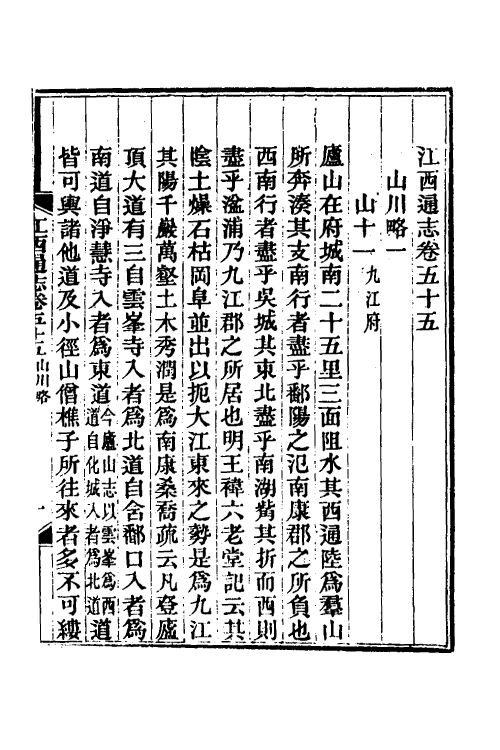 江西通志卷五十五
山川略一
山十一 九江府
廬山在府城南二十五里三面阻水其西通陸爲羣山
所奔湊其支南行者盡乎鄱陽之氾南康郡之所負也
西南行者盡乎吳城其東北盡乎南湖觜其折而西則
盡乎湓浦乃九江郡之所居也明王褘六老堂記云其
陰土燥石枯岡阜並出以扼大江東來之勢是爲九江
其陽千巖萬壑土木秀潤是爲南康桑喬疏云凡登廬
頂大道有三自雲峯寺入者爲北道自含鄱口入者爲
南道自淨慧寺入者爲東道今廬山志以雲峯爲西道自化城入者爲北道道
皆可輿諸他道及小徑山僧樵子所往來者多不可縷
江西通志卷五十五 山川略 一